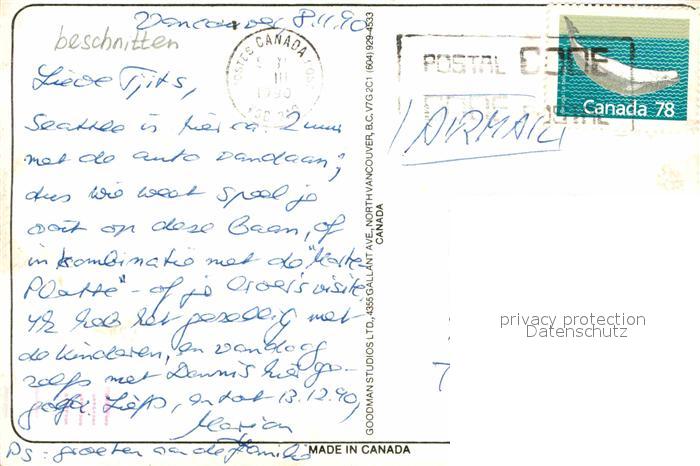 Vancouver 8.11.90
beschnitten
Lieve Tjits,
Seattle is hier ca. 2 uur
met de auto vandaan;
dus wie weet speel je
ooit op deze baan, of
in kombinatie met de
Platte" - of je visite.
Ik heb het gezellig met
de kinderen, en vandaag
zelfs met Dennis hier
Liefs, en tot 13.12.90,
Marion
Ps: groeten aan de familie
POSTES CANADA POST
1990
POSTAL CODE
CODE POSTAL
Canada 78
AIRMAIL
GOODMAN STUDIOS LTD., 4355 GALLANT AVE., NORTH VANCOUVER, B.C. V7G 2C1 (604) 929-4533
CANADA
privacy protection
Datenschutz
7
MADE IN CANADA